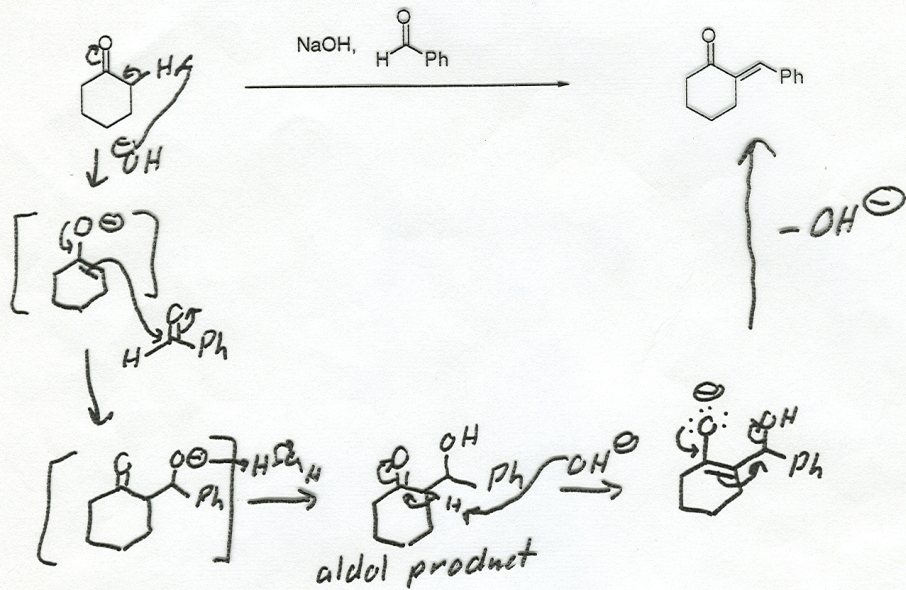 O
H
NaOH,
O
H
Ph
O
Ph
⊖OH
O⊖
- OH⊖
O
H
Ph
⊖
:O:
OH
Ph
O
O⊖
Ph
H O H
O
OH
Ph
H
OH⊖
aldol product